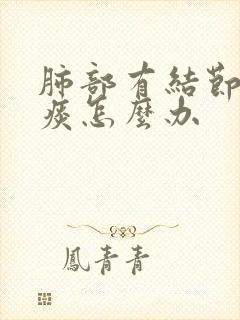 肺部有結節
痰怎麼办
鳳青青